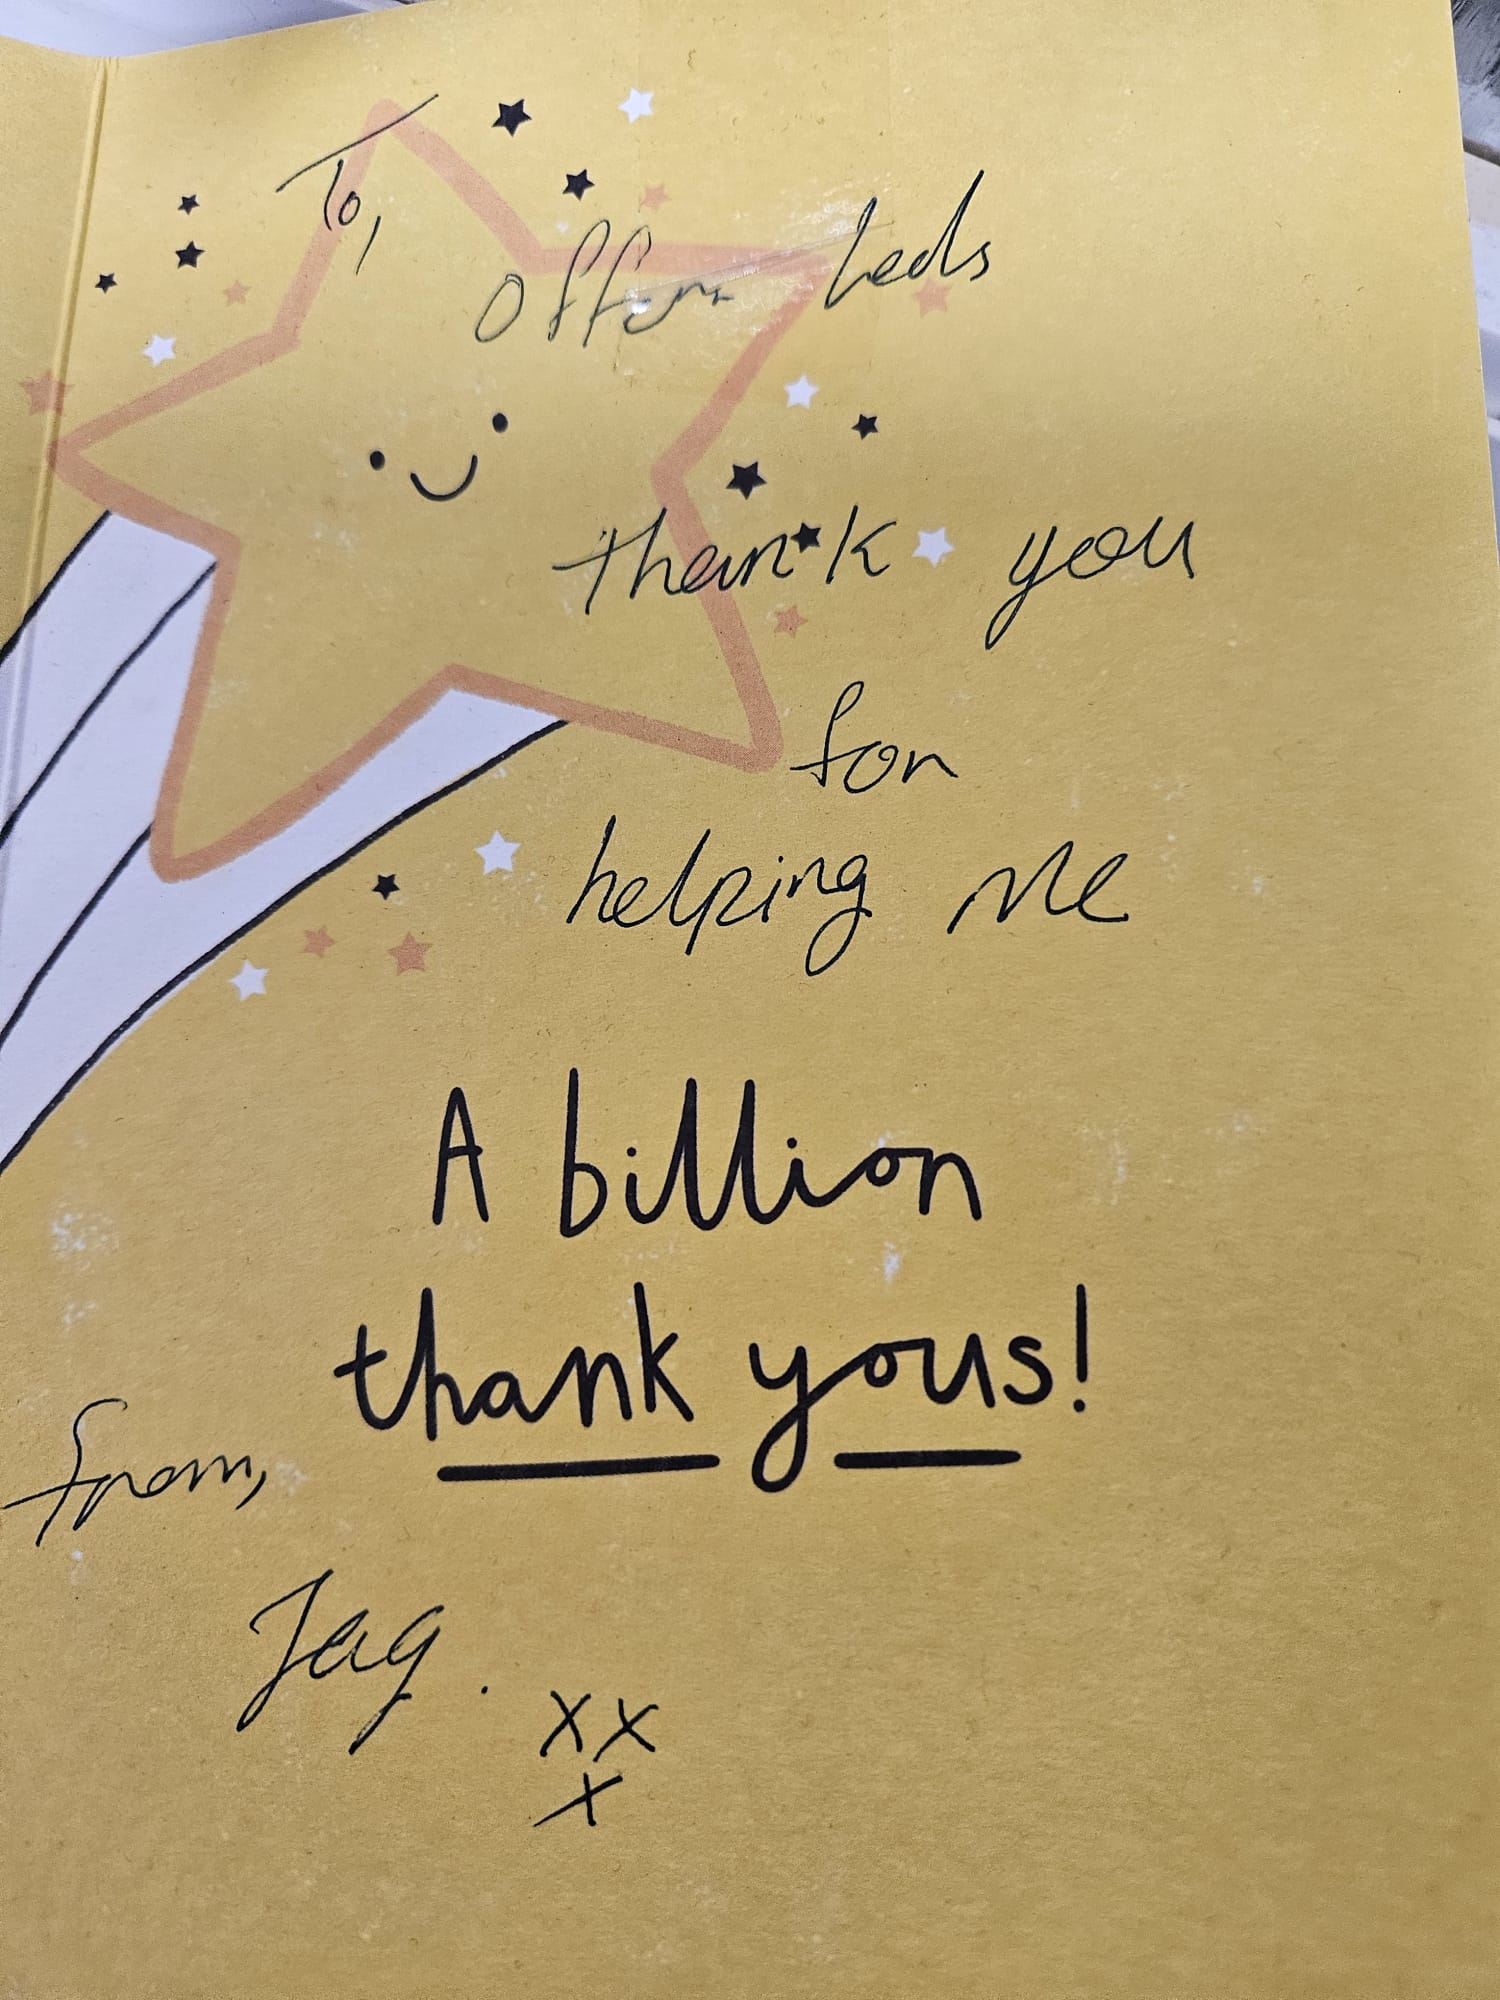 To,
offers leds
thank you
for
helping Me
A billion
thank yous!
from,
Jag.
xx
x